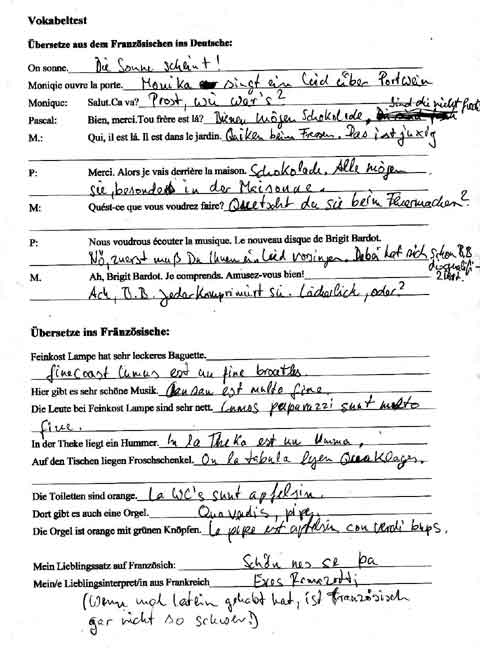 Vokabeltest
Übersetze aus dem Französischen ins Deutsche:
On sonne. Die Sonne scheint!
Moniqie ouvre la porte. Monika singt ein Leid über Portwein
Monique: Salut.Ca va? Prost, wie wär's?
Sind die nicht
Pascal: Bien, merci.Tou frère est là? Dienen mögen Schokolade,
M.: Qui, il est là. Il est dans le jardin. Quiken beim Fressen. Das ist juxig
P: Merci. Alors je vais derrière la maison. Schokolade, Alle mögen
sie, besonders in der Maisonne.
M: Quést-ce que vous voudrez faire? Quetscht du sie beim Feuermachen?
P: Nous voudrous écouter la musique. Le nouveau disque de Brigit Bardot.
Nö, zuerst muß Du Ihnen ein Leid vorsingen. Dabei hat sich schon B.B
M. Ah, Brigit Bardot. Je comprends. Amusez-vous bien!
Ach, B.B. Jeder komprimiert sie. Lächerlich, oder?
Übersetze ins Fränzösische:
Feinkost Lampe hat sehr leckeres Baguette.
finecoast Lumus est un fine broatles.
Hier gibt es sehr schöne Musik. est multo fine.
Die Leute bei Feinkost Lampe sind sehr nett. Lumos paparazzi sunt multo
fine.
In der Theke liegt ein Hummer. In la Theka est un Umma,
Auf den Tischen liegen Froschschenkel. On la tabula lyen Quaklages.
Die Toiletten sind orange. La WC's sunt apfelsin.
Dort gibt es auch eine Orgel. Quavadis, pipe.
Die Orgel ist orange mit grünen Knöpfen. Le pipe est apfelsin con verdi
Mein Lieblingssatz auf Französich: Schön nes se pa
Mein/e Lieblingsinterpret/in aus Frankreich Exes Ramazotti
(Wenn mal latein gehabt hat, ist französisch
gar nicht so schwer!)